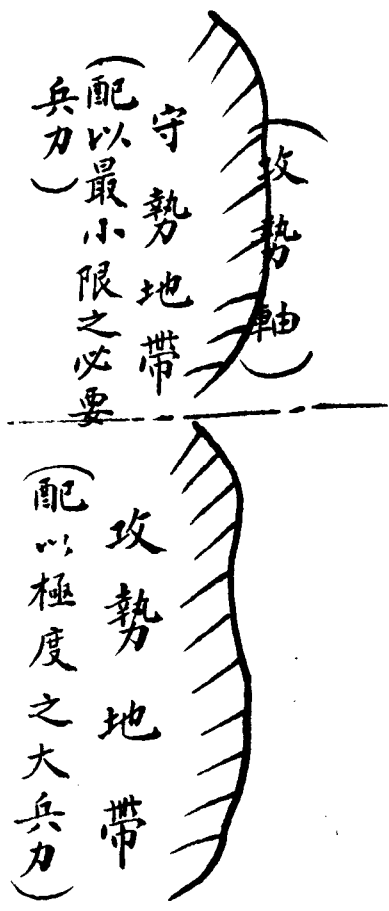 （攻勢軸）
守勢地帶
（配以最小限之必要
兵力）
攻勢地帶
（配以極度之大兵力）